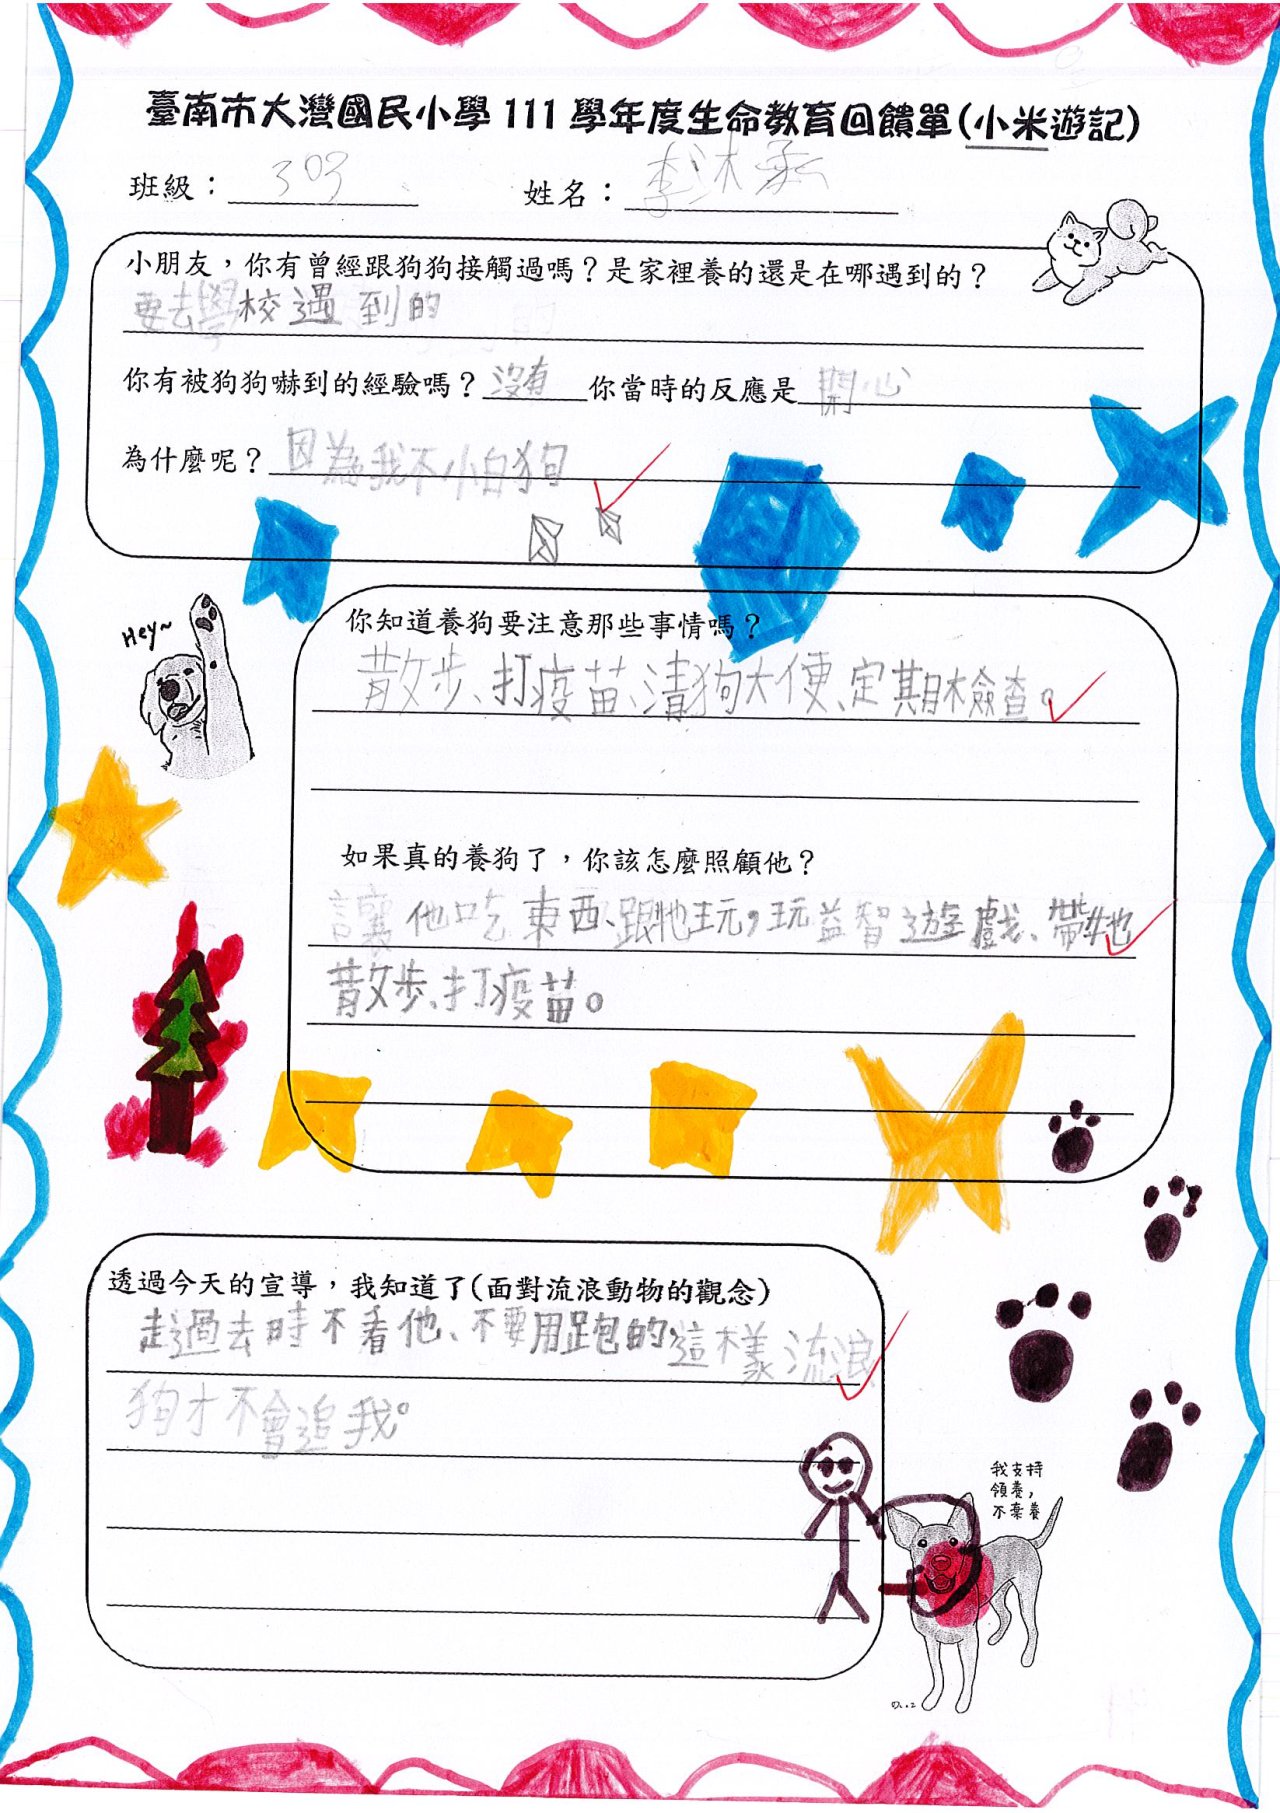 臺南市大灣國民小學 111 學年度生命教育回饋單(小米遊記)
班級：303 姓名：李沐
小朋友，你有曾經跟狗狗接觸過嗎？是家裡養的還是在哪遇到的？
要去學校遇到的
你有被狗狗嚇到的經驗嗎？沒有 你當時的反應是 開心
為什麼呢？因為我不小白狗
Hey~
你知道養狗要注意那些事情嗎？
散步、打疫苗、清狗大便、定期檢查。
如果真的養狗了，你該怎麼照顧他？
讓他吃東西、跟牠玩，玩益智遊戲、帶牠
散步、打疫苗。
透過今天的宣導，我知道了(面對流浪動物的觀念)
走過去時不看他、不要用跑的，這樣流浪
狗才不會追我。
我支持
領養，
不棄養